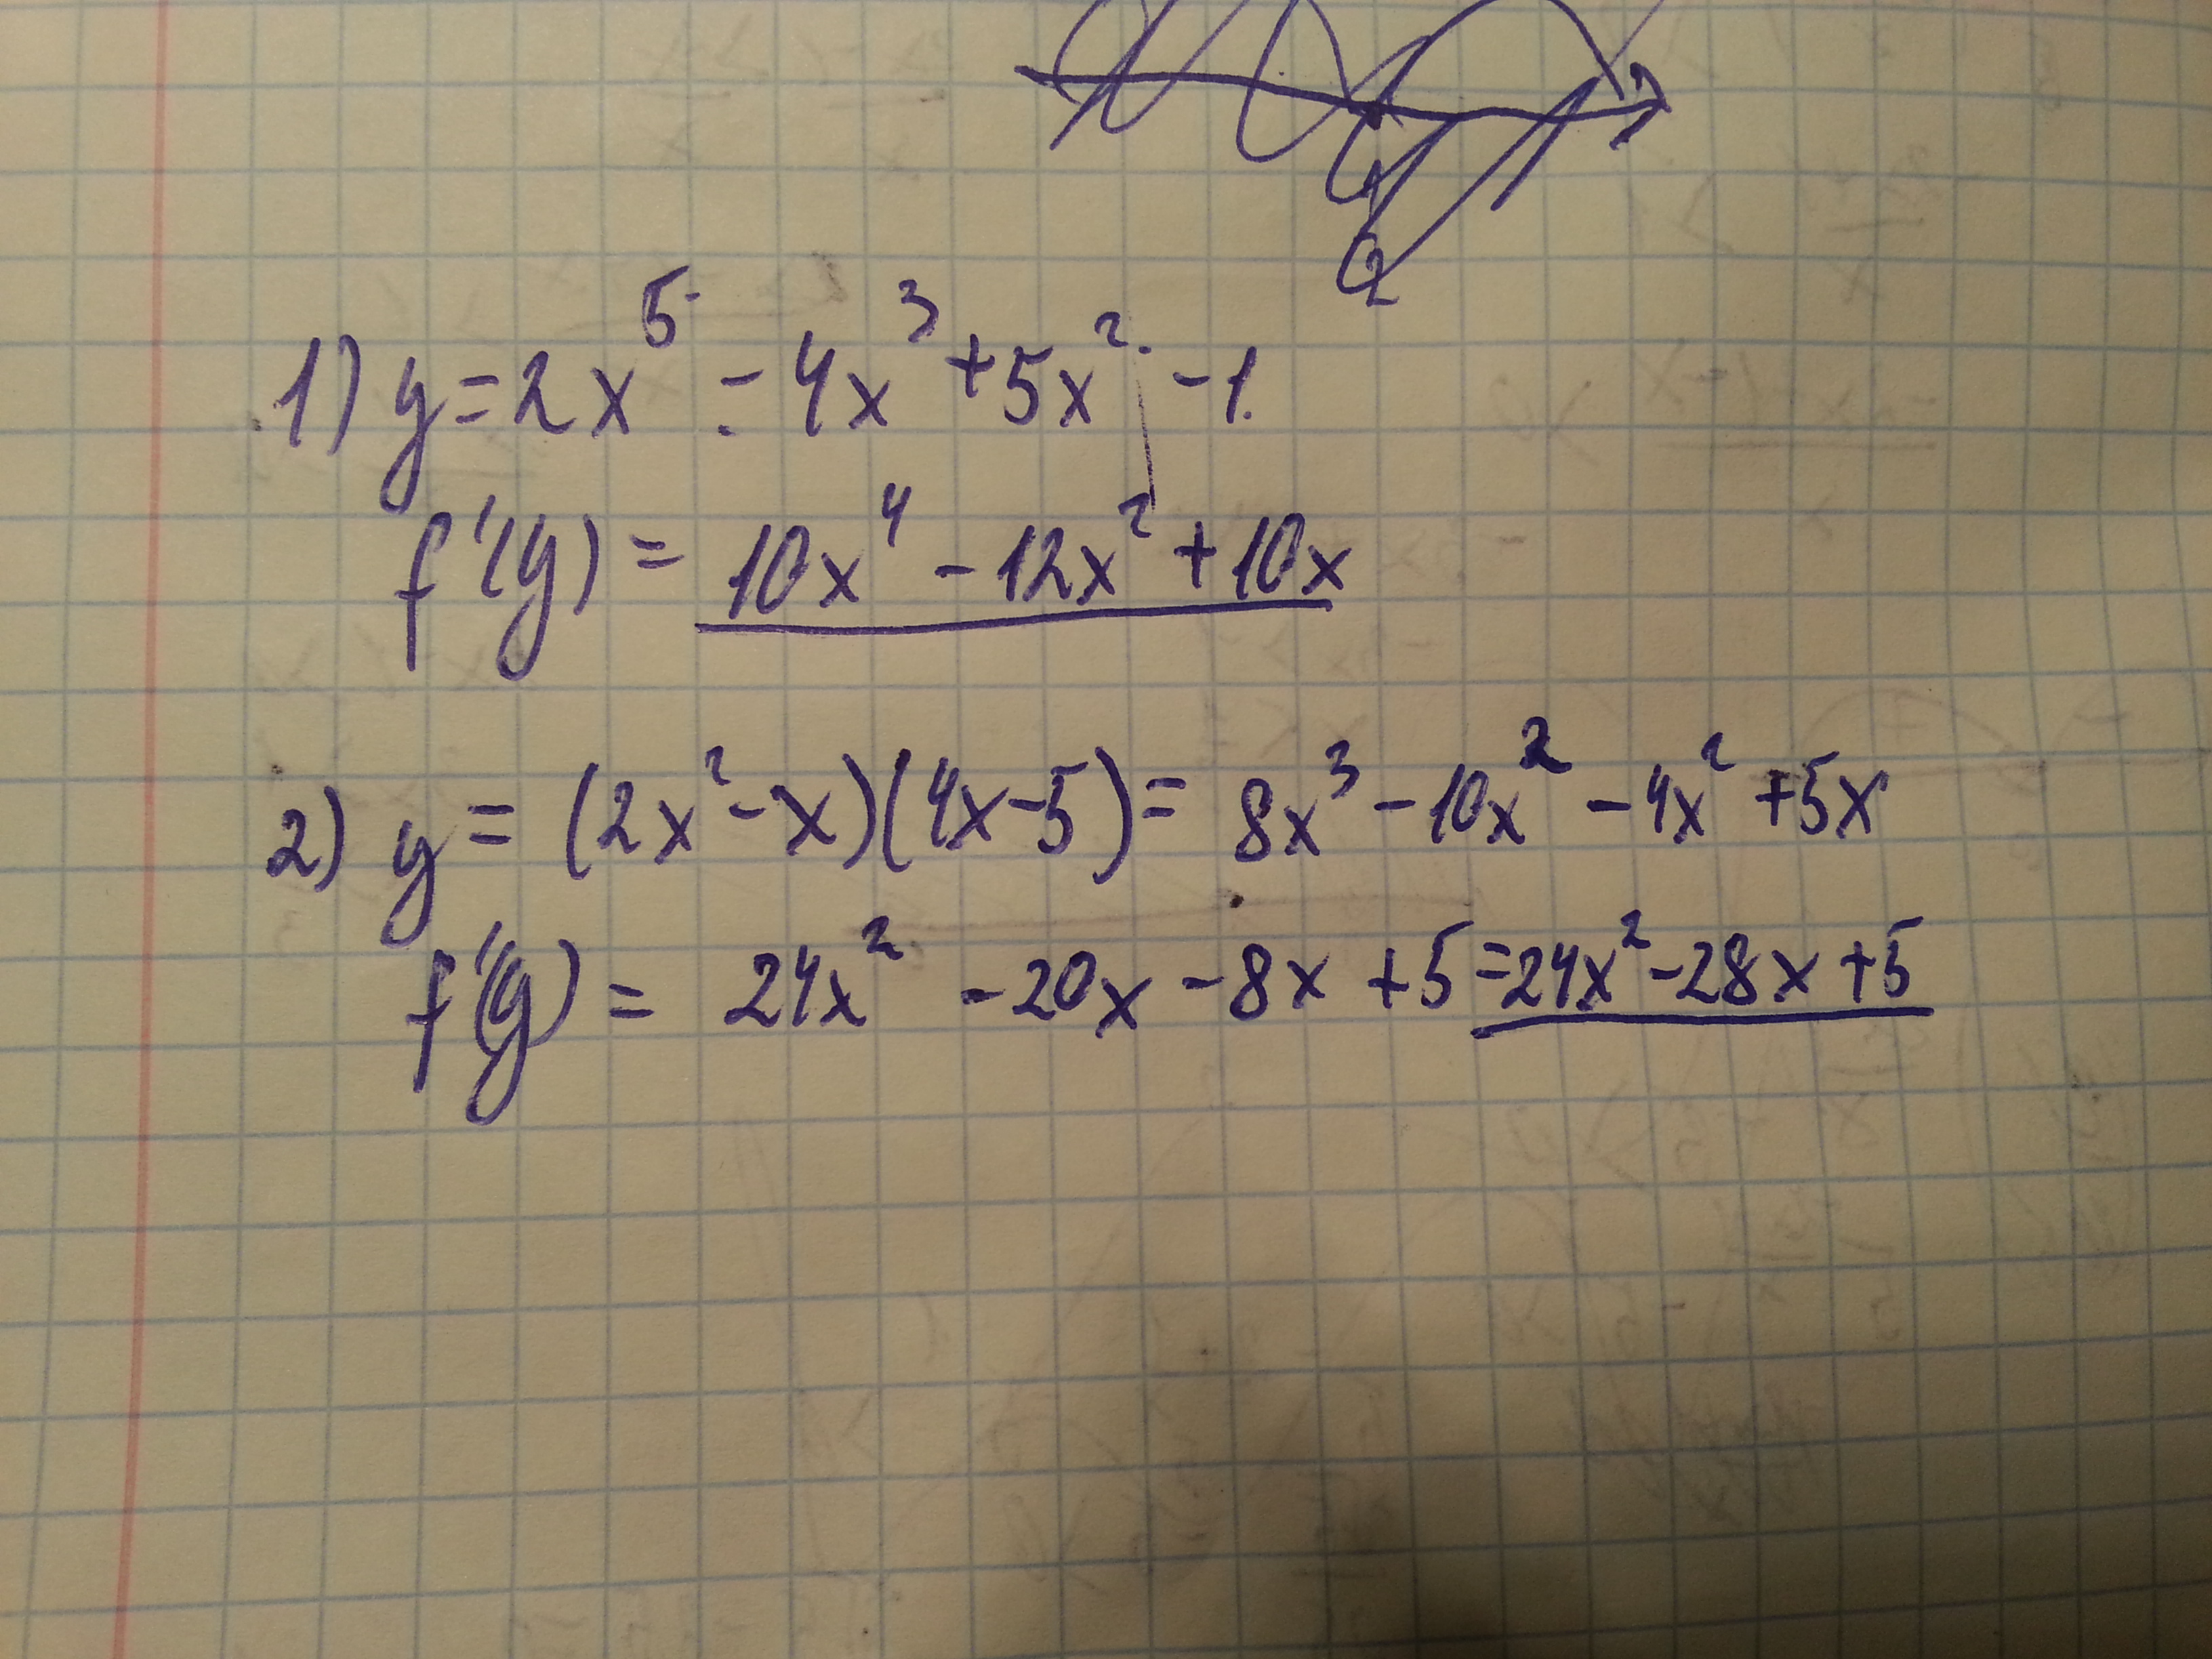 1) y = 2x⁵ - 4x³ + 5x² - 1.
f'(y) = 10x⁴ - 12x² + 10x
2) y = (2x² - x)(4x - 5) = 8x³ - 10x² - 4x² + 5x
f'(y) = 24x² - 20x - 8x + 5 = 24x² - 28x + 5